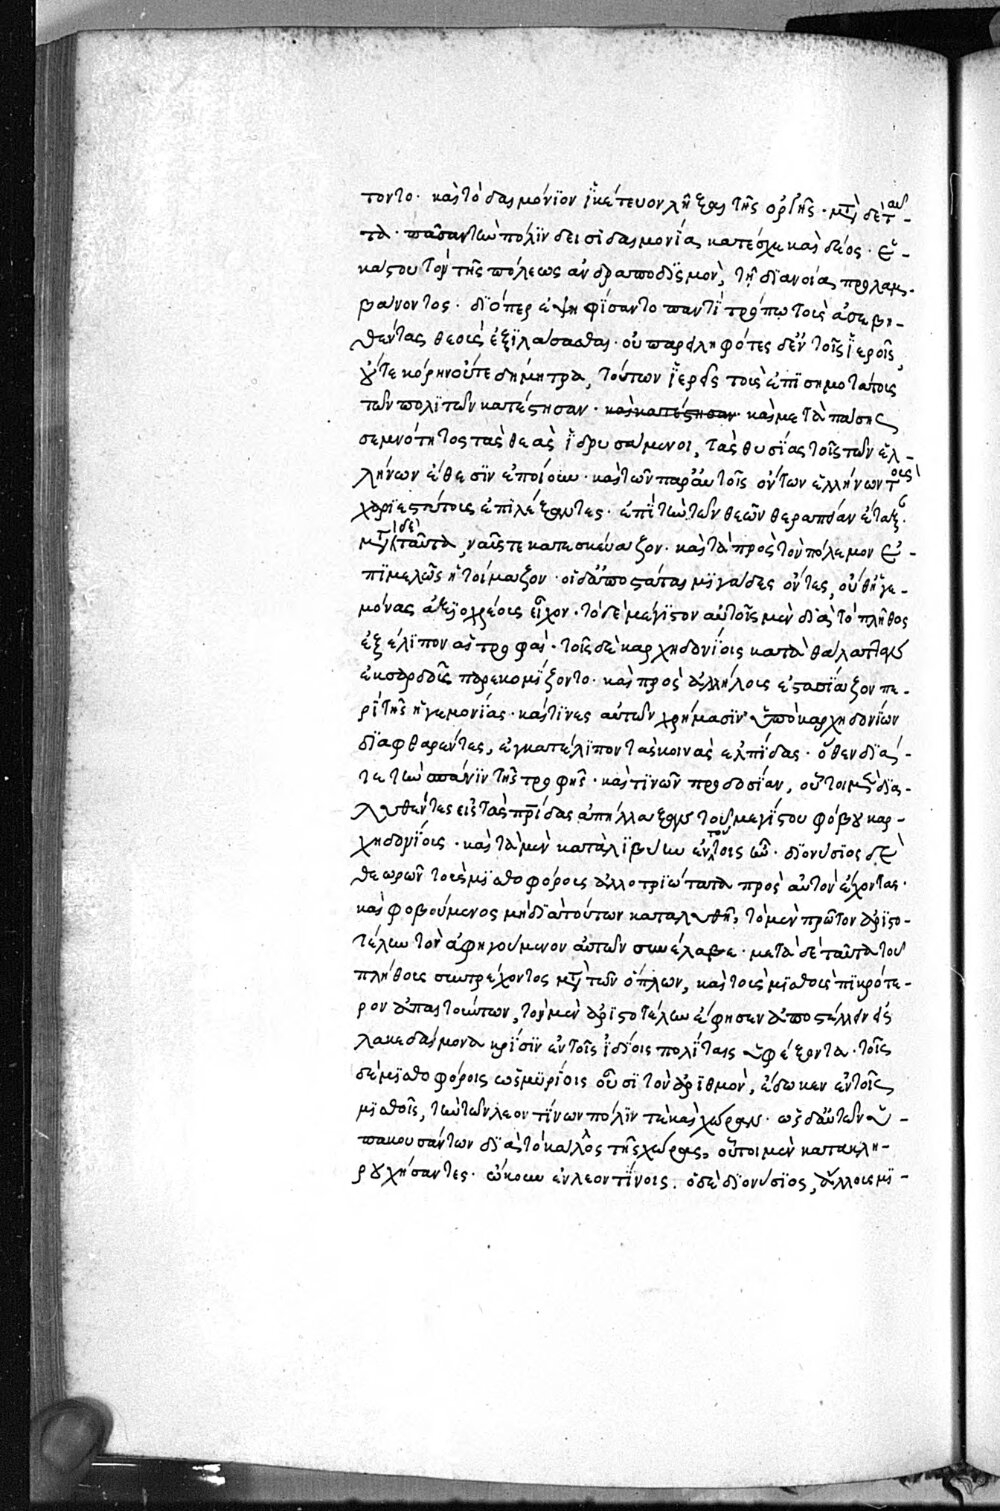 τοντο· καὶ τὸ δαιμόνιον ἱκέτευον λῆξαι τῆς ὀργῆς· μετὰ δὲ ταῦ-
τα· πᾶσαν τὴν πόλιν δεισιδαιμονία κατέσχε καὶ δέος· ἑ-
κάστου τὸν τῆς πόλεως ἀνδραποδισμὸν, τῇ διανοία προλαμ-
βάνοντος· διόπερ ἐψηφίσαντο παντὶ τρόπω τοὺς ἀσεβη-
θέντας θεοὺς ἐξιλάσασθαι· οὐ παρειληφότες δ' ἐν τοῖς ἱεροῖς,
οὔτε κόρην οὔτε δήμητρα, τούτων ἱερεῖς τοὺς ἐπισημοτάτους
τῶν πολιτῶν κατέστησαν· καὶ κατέστησαν· καὶ μετὰ πάσης
σεμνότητος τὰς θεὰς ἱδρυσάμενοι, τὰς θυσίας τοῖς τῶν ἑλ-
λήνων ἔθεσιν ἐποίουν· καὶ τῶν παρ' αὐτοῖς ὄντων ἑλλήνων τοὺς
χαριεστάτους ἐπιλέξαντες· ἐπὶ τὴν τῶν θεῶν θεραπείαν ἔταξ·
μετὰ δὲ ταῦτα, ναῦς τε κατεσκεύαζον· καὶ τὰ πρὸς τὸν πόλεμον ἐ-
πιμελῶς ἡτοίμαζον· οἱ δ' ἀποστάται μιγάδες ὄντες, οὔθ' ἡγε-
μόνας ἀξιοχρέους εἶχον· τὸ δὲ μέγιστον αὐτοῖς μὲν διὰ τὸ πλῆθος
ἐξέλιπον αἱ τροφαί· τοῖς δὲ καρχηδονίοις κατὰ θάλατταν
ἐκ σαρδοῦς παρεκομίζοντο· καὶ πρὸς ἀλλήλους ἐστασίαζον πε-
ρὶ τῆς ἡγεμονίας· καὶ τινες αὐτῶν χρήμασιν ὑπὸ καρχηδονίων
διαφθαρέντες, ἐγκατέλιπον τὰς κοινὰς ἐλπίδας· ὅθεν διά-
τε τὴν σπάνιν τῆς τροφῆς· καὶ τινῶν προδοσίαν, οὗτοι μὲν δια-
λυθέντες εἰς τὰς πρίδας ἀπήλλαξαν τοῦ μεγίστου φόβου καρ-
χηδονίους· καὶ τὰ μὲν κατὰ λιβύην ἐν τούτοις ἦν· διονύσιος δὲ
θεωρῶν τοὺς μισθοφόρους ἀλλοτριώτατα πρὸς αὐτὸν ἔχοντας·
καὶ φοβούμενος μὴ διὰ τούτων καταλυθῆ, τὸ μὲν πρῶτον ἀριστο-
τέλην τὸν ἀφηγούμενον αὐτῶν συνέλαβε· μετὰ δὲ ταῦτα τοῦ
πλήθους συντρέχοντος μετὰ τῶν ὅπλων, καὶ τοὺς μισθοὺς πικρότε-
ρον ἀπαιτούντων, τὸν μὲν ἀριστοτέλην ἔφησεν ἀποστέλλειν εἰς
λακεδαίμονα κρίσιν ἐν τοῖς ἰδίοις πολίταις ὑφέξοντα· τοῖς
δὲ μισθοφόροις ὡς μυρίοις οὖσι τὸν ἀριθμὸν, ἔδωκεν ἐν τοῖς
μισθοῖς, τὴν τῶν λεοντίνων πόλιν τὲ καὶ χώραν· ὡς δ' αὐτῶν ὑ-
πακουσάντων διὰ τὸ κάλλος τῆς χώρας, οὗτοι μὲν κατακλη-
ρουχήσαντες· ᾤκουν ἐν λεοντίνοις· ὁ δὲ διονύσιος, ἄλλους μι-